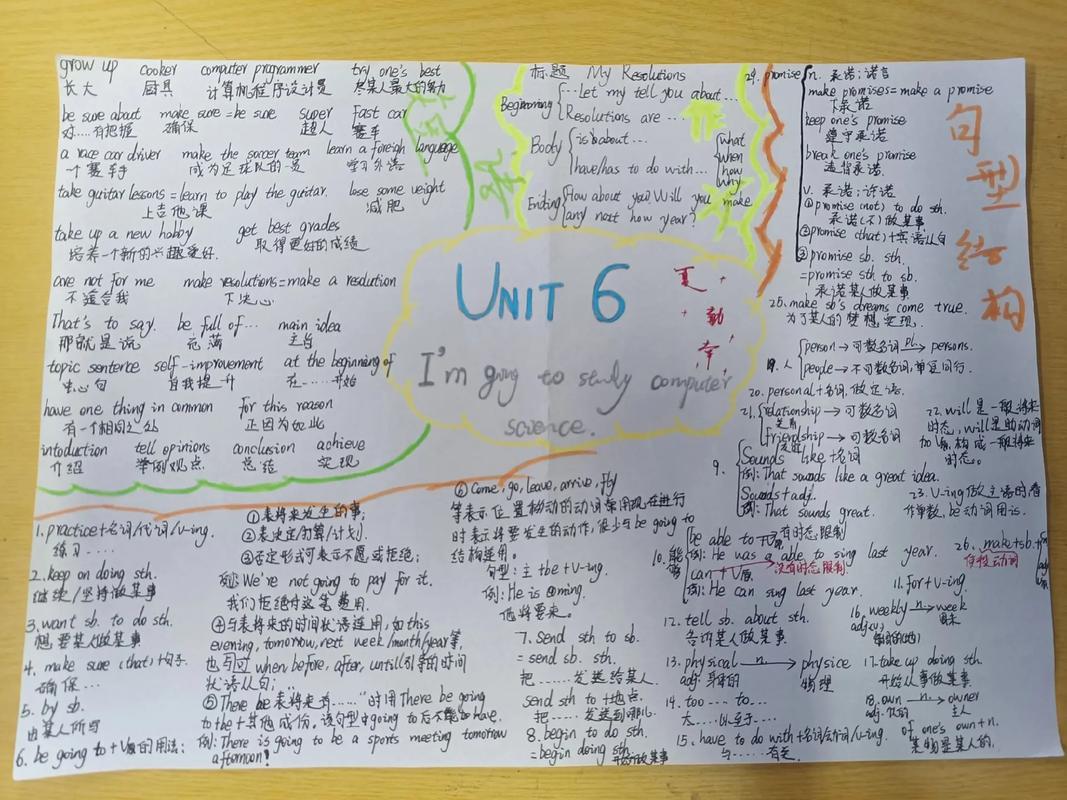 grow up cooker computer programmer try one's best
长大 厨具 计算机程序设计员 尽某人最大的努力
be sure about make sure=be sure super fast car
对……有把握 确保 超人 赛车
a race car driver make the soccer team learn a foreigh language
一个赛车手 成为足球队的一员 学习外语
take guitar lessons=learn to play the guitar. lose some weight
上吉他课 减肥
take up a new hobby get best grades
培养一个新的兴趣爱好. 取得更好的成绩
are not for me make resolutions=make a resolution
不适合我 下决心
That's to say. be full of… main idea
那就是说 充满 主旨
topic sentence self-improvement at the beginning of
中心句 自我提升 在……开始
have one thing in common for this reason
有一个相同之处 正因为如此
intoduction tell opinions conclusion achieve
介绍 举例观点 总结 实现
标题 My Resolutions
Beginning
…Let my tell you about…
Resolutions are …
Booty
is about…
have/has to do with…
what
when
how
why
Ending
How about you? Will you make
any nost how year?
作
UNIT 6
I'm going to study computer
science.
句型结构
24. promise
n. 承诺;诺言
make promises=make a promise
下承诺
keep one's promise
遵守承诺
break one's promise
违背承诺.
v. 承诺;许诺
①promise (not) to do sth.
承诺(不)做某事
②promise (that)+宾语从句
③promise sb. sth.
=promise sth to sb.
承诺某人做某事
25. make sb's dreams come true.
为了某人的梦想实现.
19. 人
person→可数名词 pl.→persons.
people→不可数名词,单复同行.
20. personal+名词,做定语.
21. relationship→可数名词
关系
friendship→可数名词
友谊
22. will是一般将来
时态, will是助动词
构成一般将来
时态。
9.
Sounds like+名词
例: That sounds like a great idea.
Sounds+adj.
例: That sounds great.
23. V-ing做主语时看
作单数, be动词用is.
10. 能够
be able to 有时态限制
例: He was able to sing last year.
can+V原 没有时态限制
例: He can sing last year.
26. make+sb.+
使役动词
11. for+V-ing.
12. tell sb. about sth.
告诉某人做某事
16. weekly n→week
周末
13. physical n.→physice
adj. 身体的 物理
17. take up doing sth.
开始从事做某事
14. too…… to…
太……以至于……
18. own n.→owner
主人
15. have to do with+名词/代词/v-ing.
与……有关
of one's own+n.
某物是某人的.
1. practice+名词/代词/v-ing.
练习……
2. keep on doing sth.
继续/坚持做某事
3. want sb. to do sth.
想要某人做某事
4. make sure (that)+句子.
确保…
5. by sb.
由某人所写
6. be going to+V原的用法:
①表将来发生的事;
②表决定/打算/计划.
③否定形式可表示不愿或拒绝;
例: We're not going to pay for it.
我们拒绝付这笔费用.
④与表将来的时间状语连用, 如this
evening, tomorrow, next week/month/year等,
也可过when, before, after, untill引导的时间
状语从句;
⑤There be表将来有……"时用There be going
to the+其他成份, 该句型中going to后不能加have.
例: There is going to be a sports meeting tomorrow
afternoon!
⑥Come, go, leave, arrive, fly
等表示位置移动的动词常用现在进行
时表示将要发生的动作, 很少与be going to
结构连用。
句型: 主+be+V-ing.
例: He is coming.
他将要来。
7. Send sth to sb.
=send sb. sth.
把……发送给某人.
send sth to+地点.
把……发送到哪儿.
8. begin to do sth.
=begin doing sth.
开始做某事